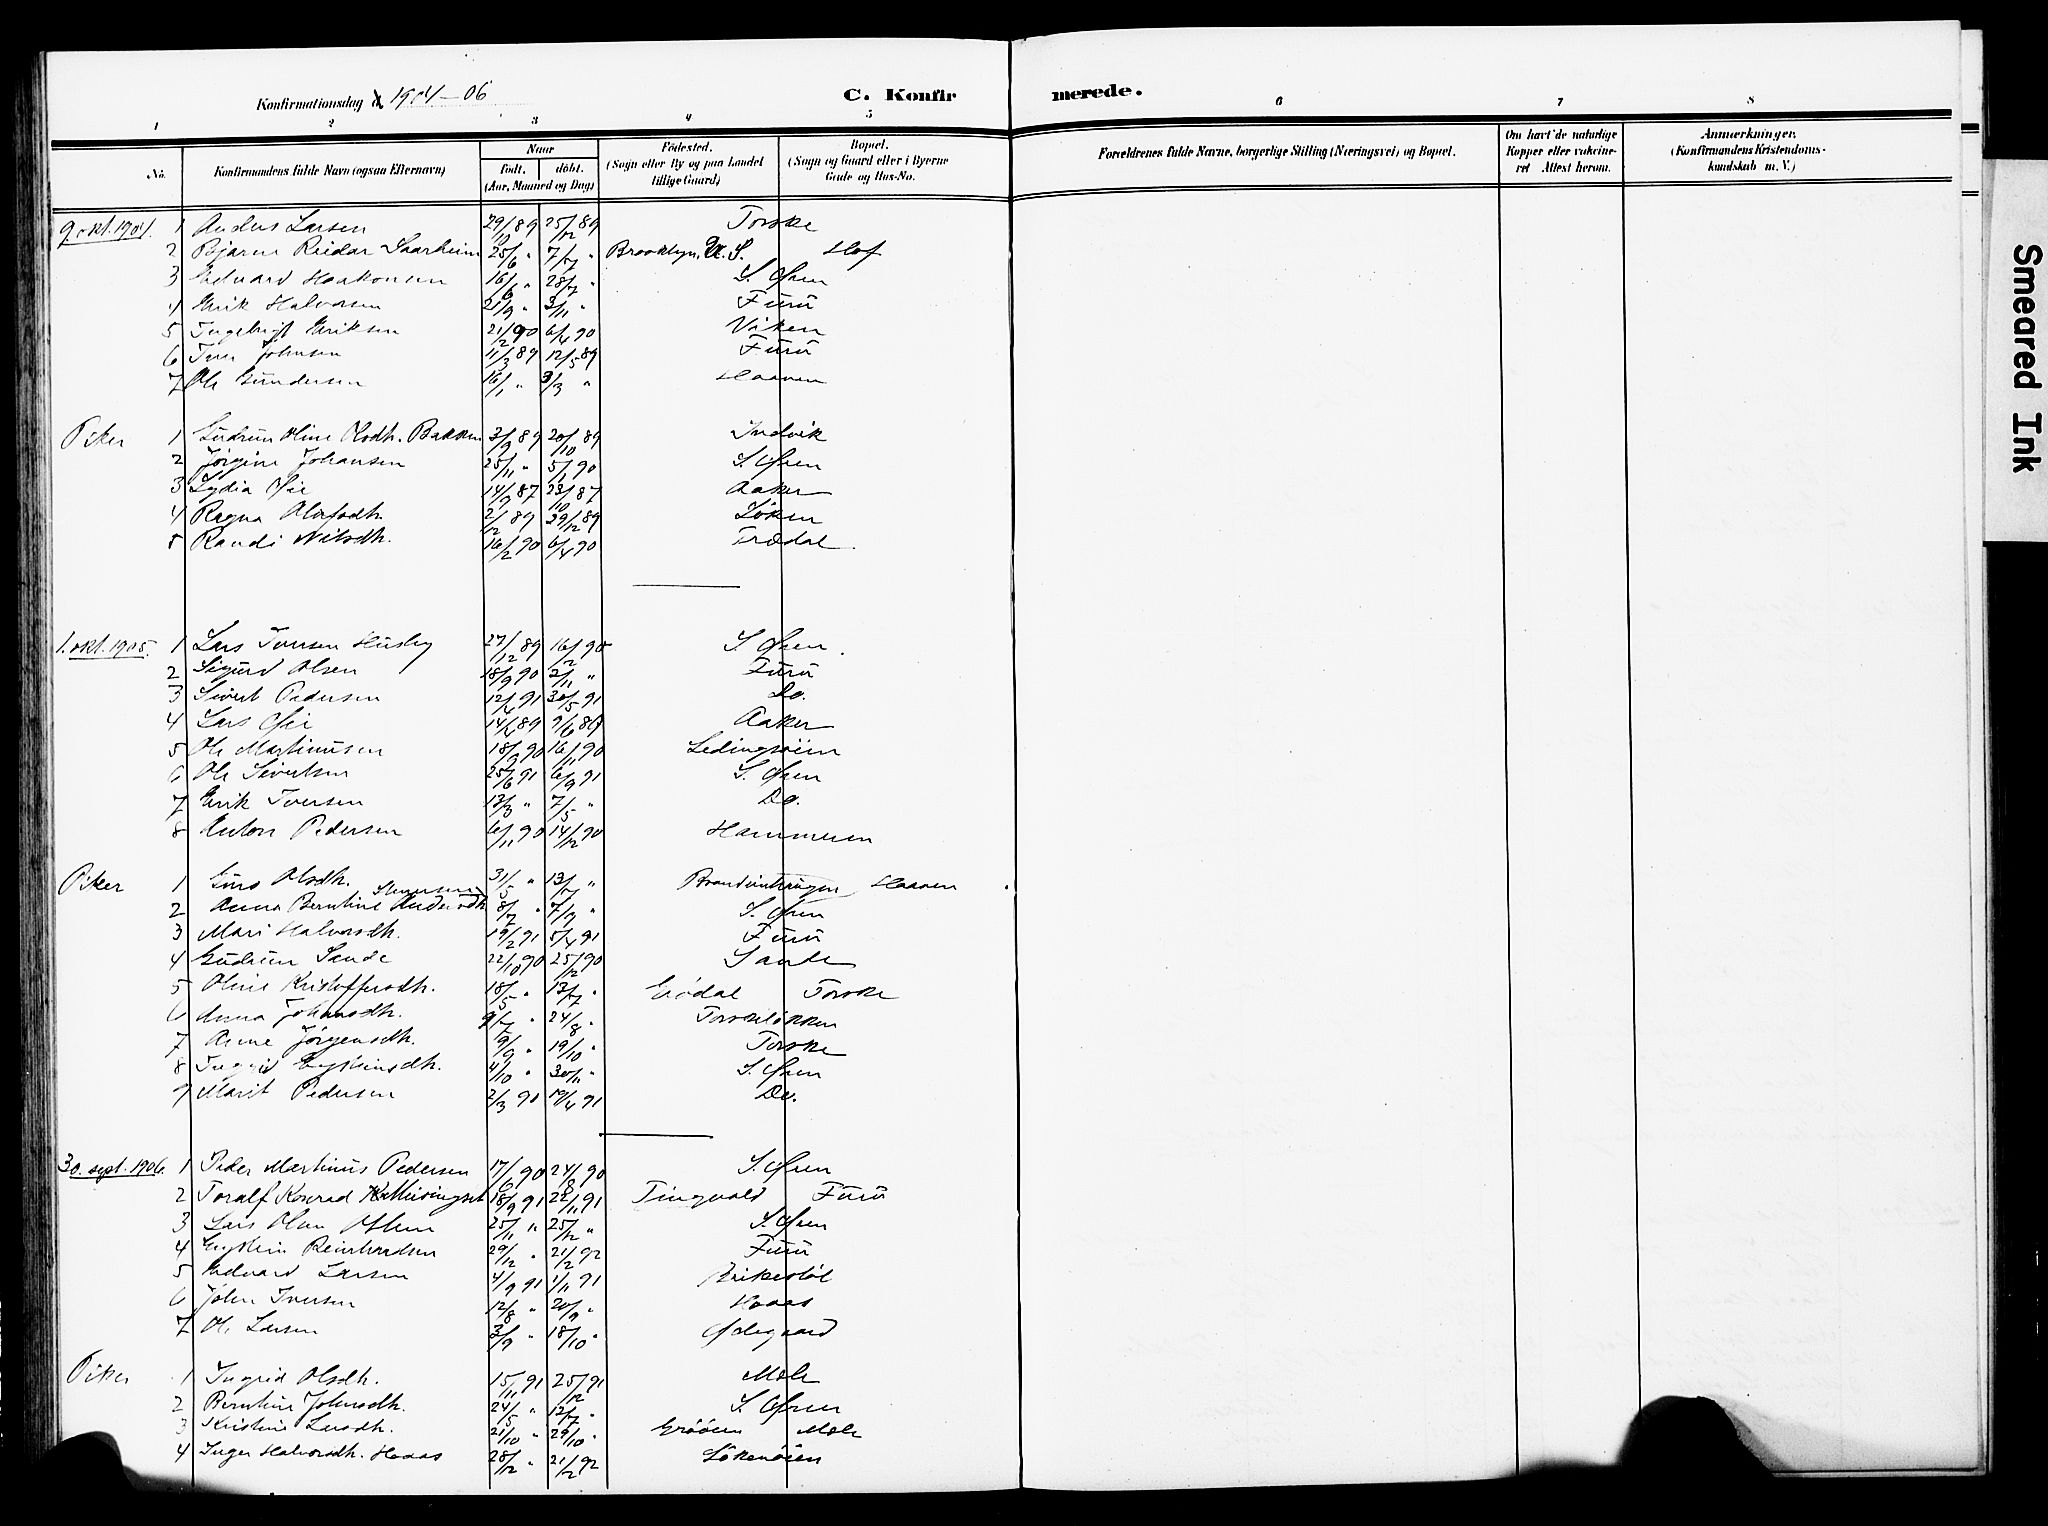 Konfirmationsdag d. 1904-06
C. Konfirmerede.
1 2 3 4 5 6 7 8
No. Konfirmandens fulde Navn (ogsaa Efternavn) Naar født. døbt. (Aar, Maaned og Dag) Fødested. (Sogn eller By og paa Landet tillige Gaard) Bopæl. (Sogn og Gaard eller i Byerne Gade og Hus-No. Forældrenes fulde Navne, borgerlige Stilling (Næringsvei) og Bopæl. Om havt de naturlige Kopper eller vakcineret Attest herom. Anmærkninger. (Konfirmandens Kristendomskundskab m. V.)
9 okt. 1904. 1 Anders Larsen 29/10 89 25/12 89 Torske
2 Bjarne Reidar Saarheim 25/6 " 7/7 " Brooklyn, U. S. Hof
3 Edvard Haakonsen 16/6 " 28/7 " S. Øren
4 Erik Halvorsen 21/9 " 3/11 " Furu
5 Ingebrigt Eriksen 21/2 90 6/4 90 Viken
6 Iver Johnsen 11/3 89 12/5 89 Furu
7 Ole Gundersen 16/1 " 3/3 " Haaven
Piker 1 Gudrun Oline Olsdtr. Bakken 3/9 89 20/10 89 Indvik
2 Jørgine Johansen 25/11 " 5/1 90 S. Øren
3 Lydia Øie 14/9 87 23/10 87 Aaker
4 Ragna Olafsdtr. 2/12 89 29/12 89 Løken
5 Randi Nilsdtr. 16/2 90 6/4 90 Trædal
1. okt. 1905. 1 Lars Iversen Husby 27/12 89 16/2 90 S. Øren.
2 Sigurd Olsen 18/9 90 2/11 " Furu
3 Sivert Pedersen 12/4 91 30/5 91 Do.
4 Lars Øie 14/4 89 9/6 89 Aaker
5 Ole Martinusen 18/9 90 16/11 90 Ledingsøien
6 Ole Sivertsen 25/6 91 6/9 91 S. Øren
7 Erik Iversen 13/3 " 7/5 " Do.
8 Anton Pedersen 6/11 90 14/12 90 Hammeren
Piker 1 Guro Olsdtr. 31/5 " 13/7 " Haaven
2 Anna Berntine Andersdtr. 8/7 " 7/9 " S. Øren
3 Mari Halvorsdtr. 19/2 91 5/4 91 Furu
4 Gudrun Sande 22/10 90 25/12 90 Sande
5 Oline Kristoffersdtr. 18/5 " 13/7 " Grødal Torske
6 Anna Johansdtr. 9/7 " 24/8 " Torskeløkken
7 Anne Jørgensdtr. 9/9 " 19/10 " Torske
8 Ingrid Eysteinsdtr. 4/10 " 30/11 " S. Øren
9 Marit Pedersen 2/3 91 19/4 91 Do.
30. sept. 1906. 1 Peder Martinus Pedersen 17/6 90 24/8 90 S. Øren
2 Toralf Konrad Meisingset 18/9 91 22/11 91 Tingvold Furu
3 Lars Olsen 25/11 " 25/12 " S. Øren
4 Eystein Reinhardsen 29/12 " 21/2 92 Furu
5 Edvard Larsen 4/9 91 1/11 91
6 John Iversen 12/8 " 20/9 " Haaas
7 Ole Larsen 3/9 " 18/10 " Ødegaard
Piker 1 Ingrid Olsdtr. 15/11 91 25/12 91 Mæle
2 Berntine Johnsdtr. 24/5 " 12/7 " S. Øren
3 Kristine Larsdtr. 21/10 " 29/10 " Grøøien Mæle
4 Inger Halvorsdtr. Haaas 28/12 " 21/2 92 Løkenøien
Smeared Ink